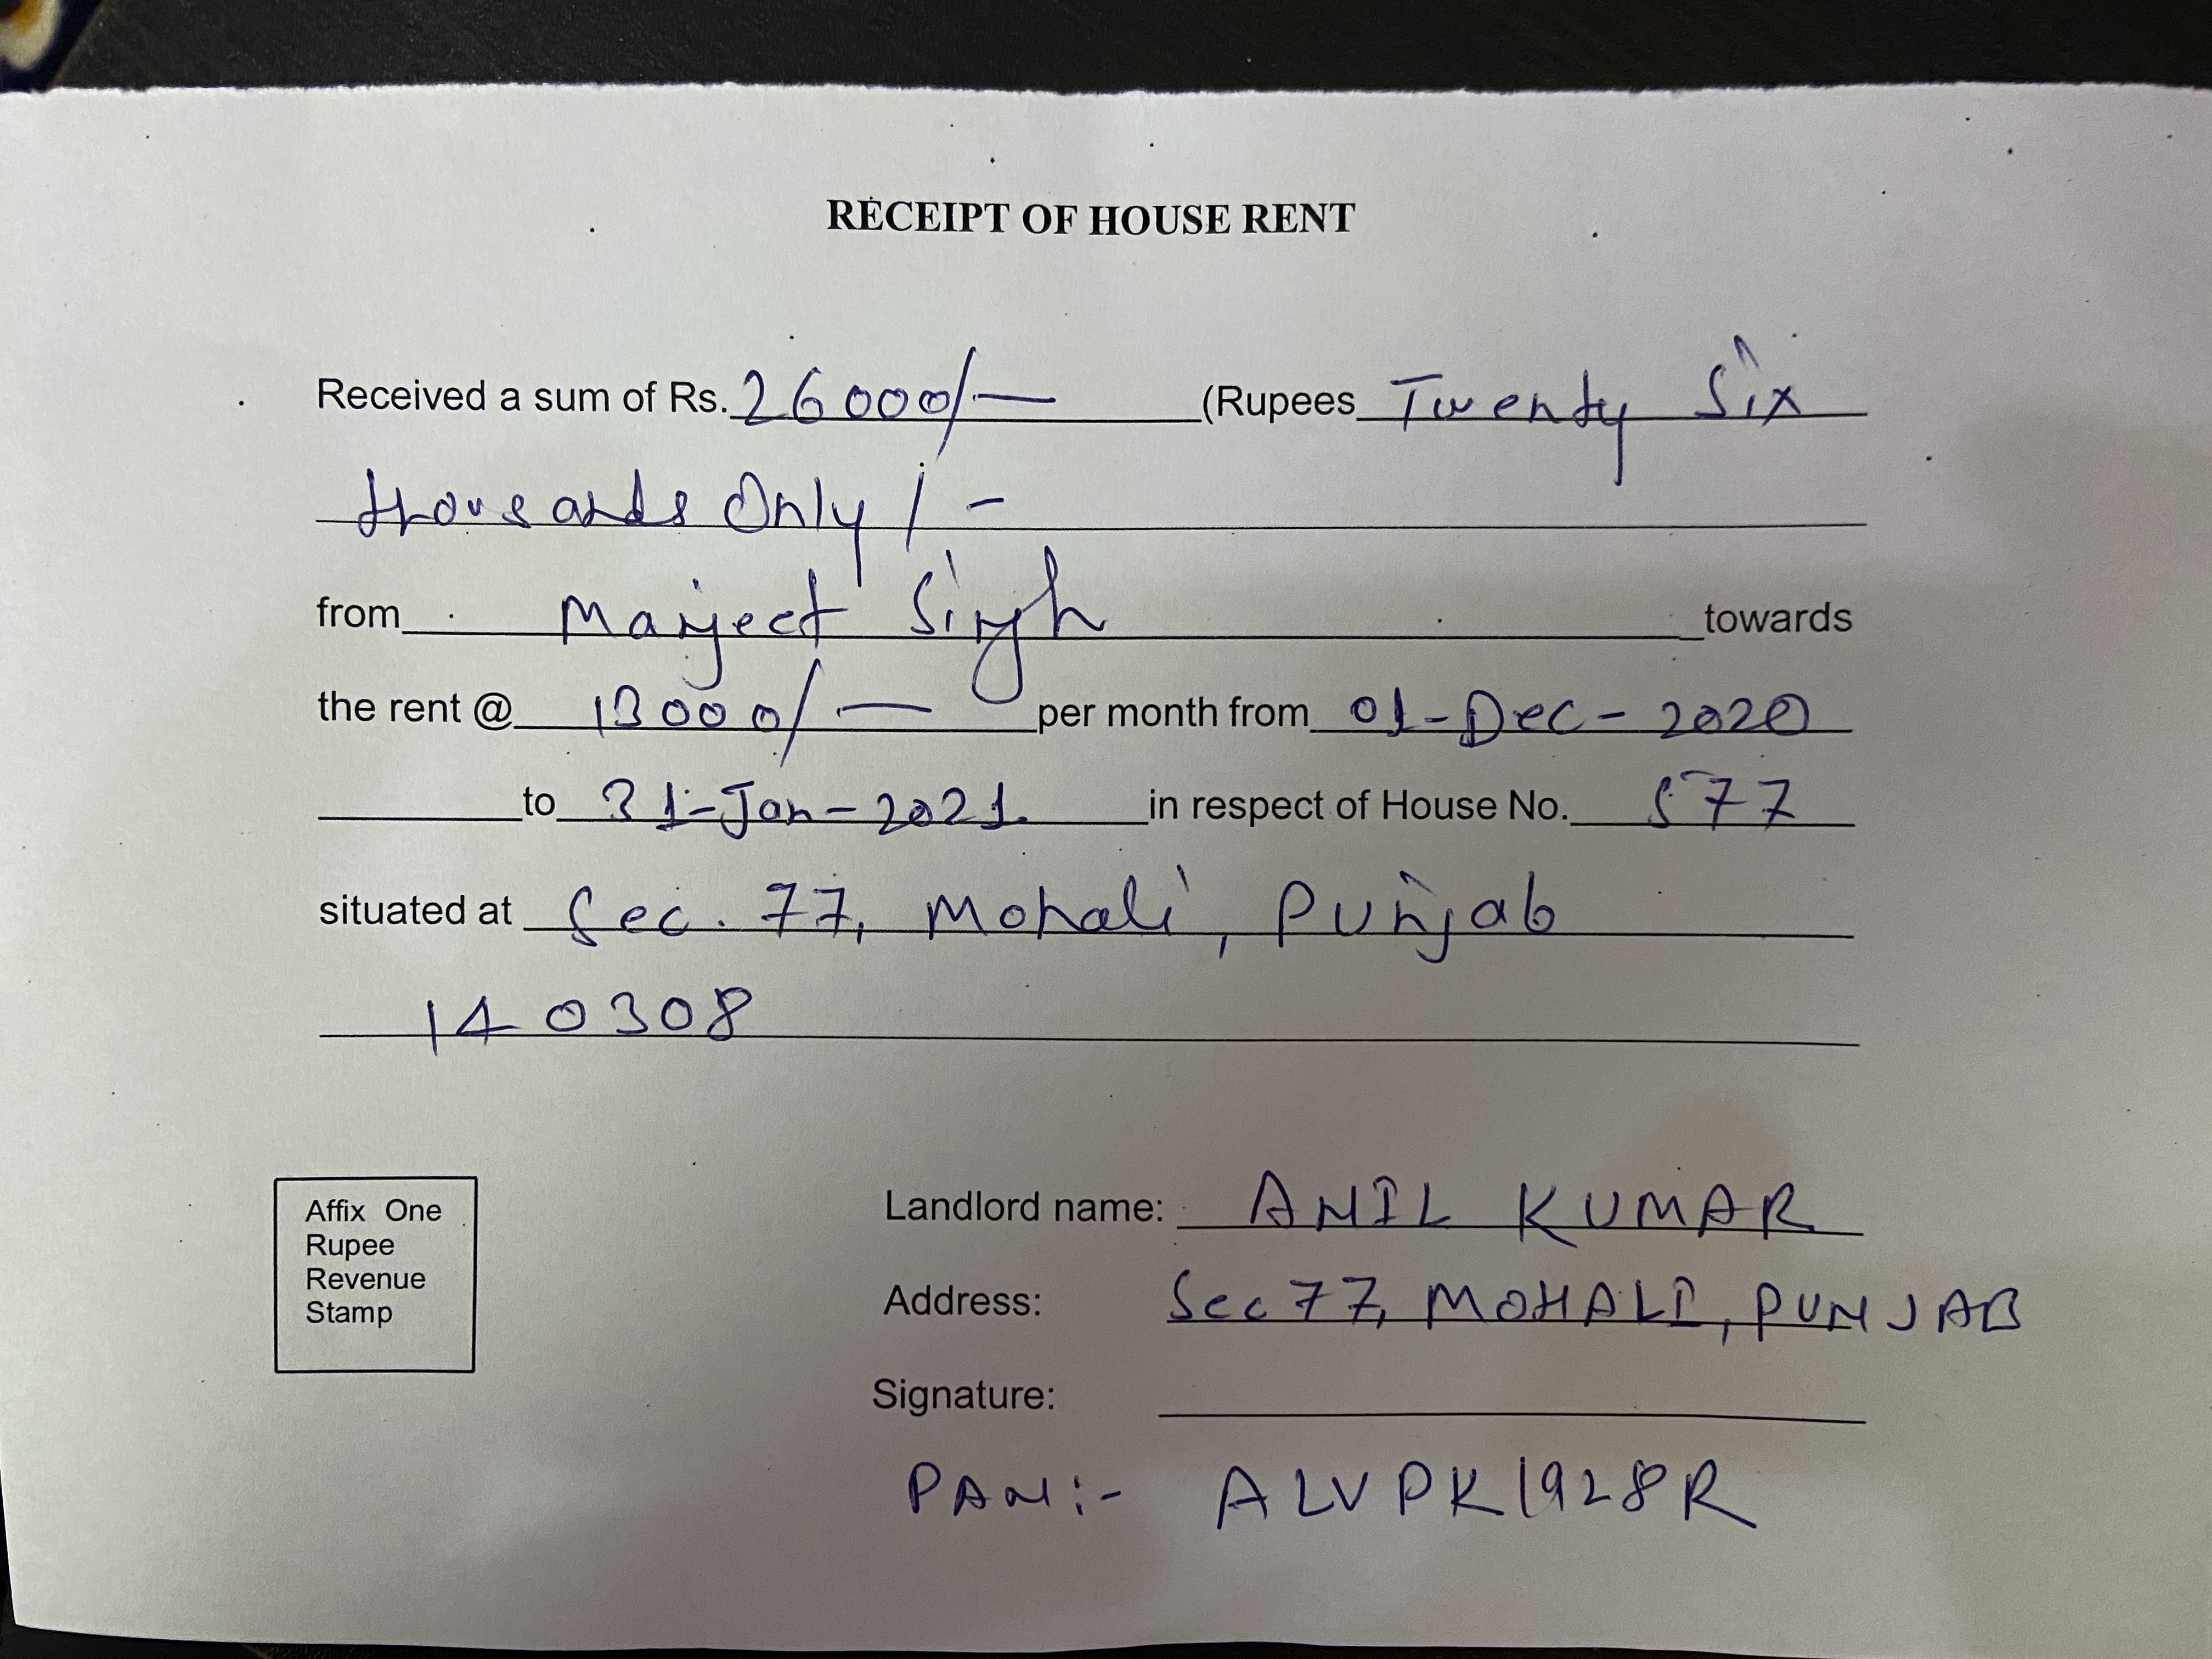 RECEIPT OF HOUSE RENT
Received a sum of Rs. 26000/- (Rupees Twenty Six
thousands Only/-
from Manjeet Singh towards
the rent @ 13000/- per month from 01-Dec-2020
to 31-Jan-2021 in respect of House No. 577
situated at Sec. 77, Mohali, Punjab
140308
Affix One
Rupee
Revenue
Stamp
Landlord name: ANIL KUMAR
Address: Sec 77, MOHALI, PUNJAB
Signature:
PAN:- ALVPK1928R